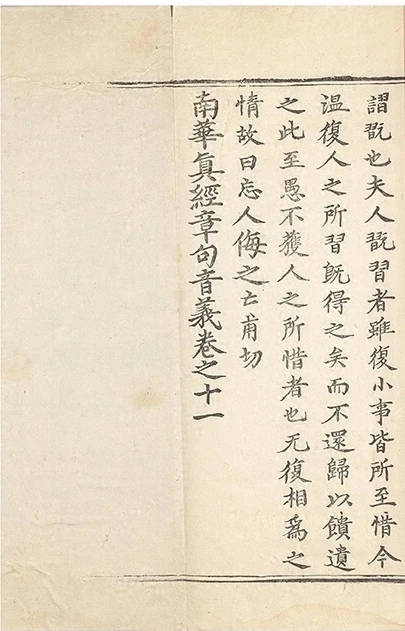 謂翫也夫人翫習者雖復小事皆所至惜今
温復人之所習既得之矣而不還歸以饋遺
之此至愚不獲人之所惜者也无復相爲之
情故曰忘人侮之亡甫切
南華眞經章句音義卷之十一